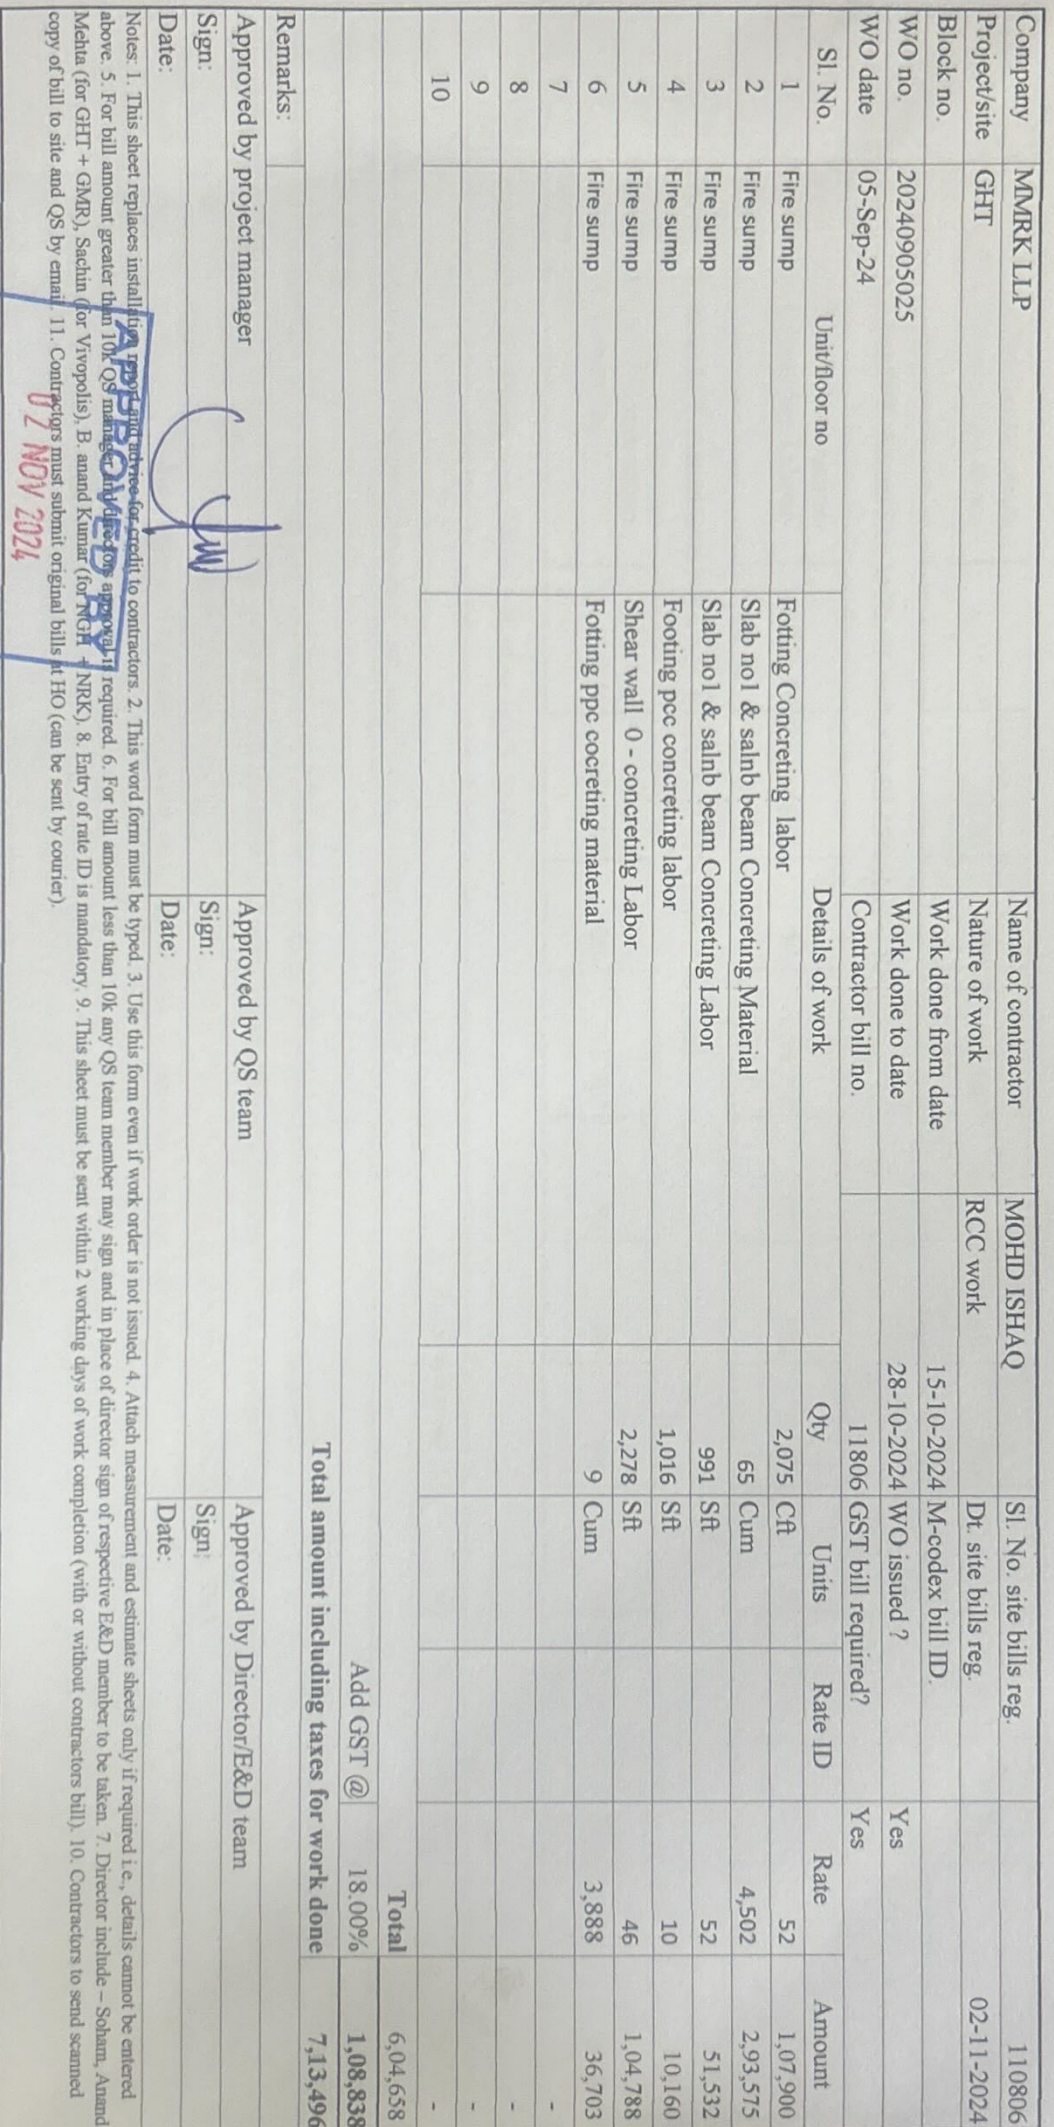 Company MMRK LLP Name of contractor MOHD ISHAQ Sl. No. site bills reg. 110806
Project/site GHT Nature of work RCC work Dt. site bills reg. 02-11-2024
Block no. Work done from date 15-10-2024 M-codex bill ID.
WO no. 20240905025 Work done to date 28-10-2024 WO issued ? Yes
WO date 05-Sep-24 Contractor bill no. 11806 GST bill required? Yes
Sl. No. Unit/floor no Details of work Qty Units Rate ID Rate Amount
1 Fire sump Fotting Concreting labor 2,075 Cft 52 1,07,900
2 Fire sump Slab no1 & salnb beam Concreting Material 65 Cum 4,502 2,93,575
3 Fire sump Slab no1 & salnb beam Concreting Labor 991 Sft 52 51,532
4 Fire sump Footing pcc concreting labor 1,016 Sft 10 10,160
5 Fire sump Shear wall 0 - concreting Labor 2,278 Sft 46 1,04,788
6 Fire sump Fotting ppc cocreting material 9 Cum 3,888 36,703
7 -
8 -
9 -
10 -
Total 6,04,658
Add GST @ 18.00% 1,08,838
Total amount including taxes for work done 7,13,496
Remarks:
Approved by project manager Approved by QS team Approved by Director/E&D team
Sign: Sign: Sign:
Date: Date: Date:
Notes: 1. This sheet replaces installation report and advice for credit to contractors. 2. This word form must be typed. 3. Use this form even if work order is not issued. 4. Attach measurement and estimate sheets only if required i.e., details cannot be entered
above. 5. For bill amount greater than 10k QS manager and directors approval is required. 6. For bill amount less than 10k any QS team member may sign and in place of director sign of respective E&D member to be taken. 7. Director include – Soham, Anand
Mehta (for GHT + GMR), Sachin (for Vivopolis), B. anand Kumar (for NGH + NRK). 8. Entry of rate ID is mandatory. 9. This sheet must be sent within 2 working days of work completion (with or without contractors bill). 10. Contractors to send scanned
copy of bill to site and QS by email. 11. Contractors must submit original bills at HO (can be sent by courier).
APPROVED BY
02 NOV 2024